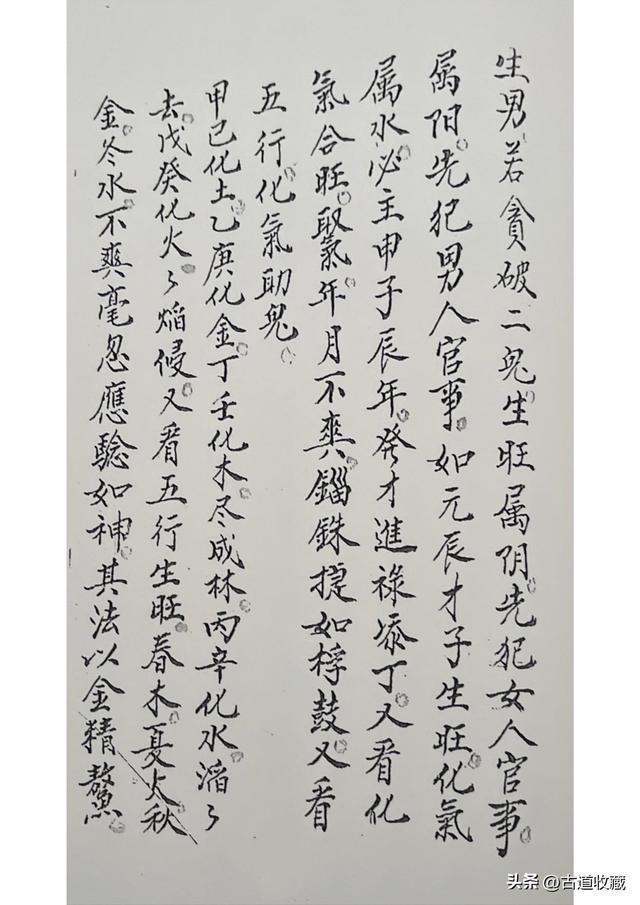 生男若貪破二鬼。生旺属阴。先犯女人官事。
属阳。先犯男人官事。如元辰才子生旺。化氣
属水。必主申子辰年。発才進祿添丁。又看化
氣合旺。取氣年月不爽錙銖捷如桴鼓。又看
五行化氣助鬼。
甲己化土。乙庚化金。丁壬化木尽成林。丙辛化水。滔〻
去。戊癸化火〻焰侵。又看五行生旺。春木。夏火。秋
金。冬水。不爽毫忽應驗如神。其法以金精鰲。
头条 @古道收藏